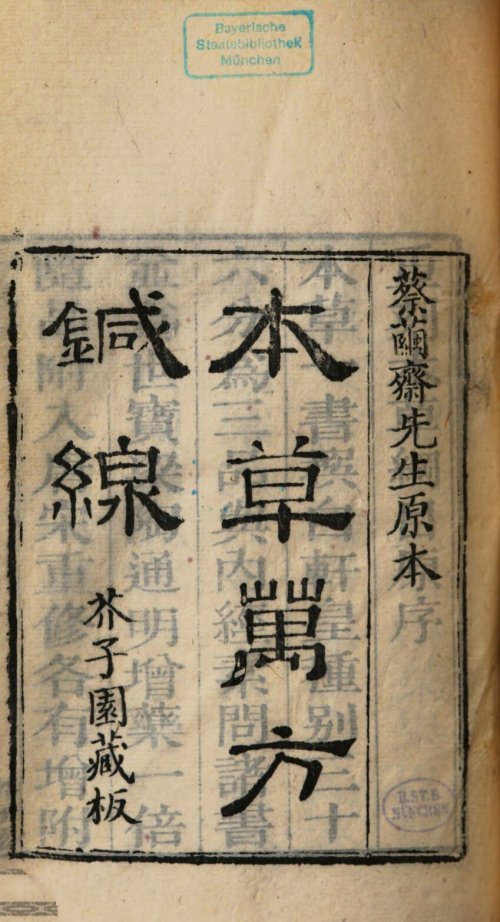 Bayerische
Staatsbibliothek
München
蔡繭齋先生原本
本草萬方
鍼線
芥子園藏板